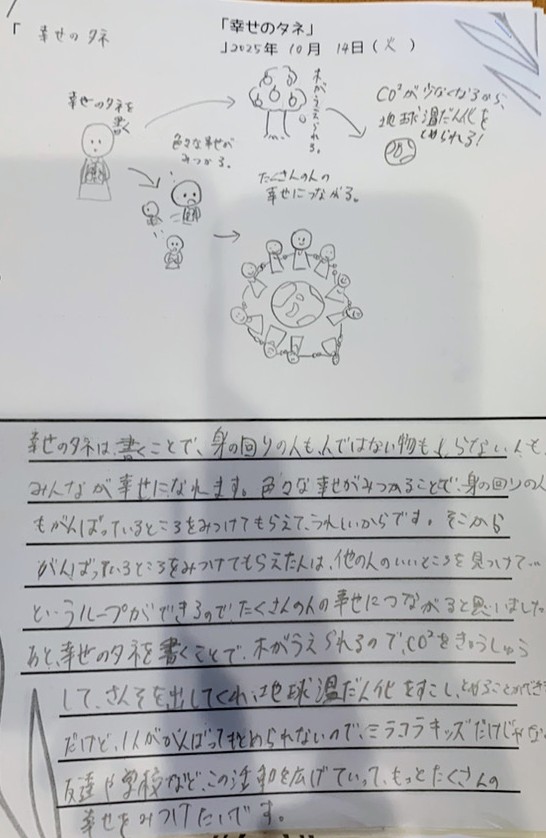 「幸せのタネ」
「 幸せのタネ
」2025年 10月 14日(火)
幸せのタネを
書く
木がうえられる。
CO²が少なくなるから、
地球温だん化を
とめられる!
色々な幸せが
みつかる。
たくさんの人の
幸せにつながる。
幸せのタネは、書くことで、身の回りの人も、人ではない物も、しらない人も、
みんなが幸せになれます。色々な幸せがみつかることで、身の回りの人
もがんばっているところをみつけてもらえて、うれしいからです。そこから
がんばっているところをみつけてもらえた人は、他の人のいいところを見つけて…
というループができるので、たくさんの人の幸せにつながると思いました
あと、幸せのタネを書くことで、木がうえられるので、CO²をきゅうしゅう
して、さんそを出してくれ、地球温だん化をすこし、とめることができ
だけど、1人ががんばってもとめられないので、ミラコラキッズだけじゃな
友達や学校など、この活動を広げていって、もっとたくさんの
幸せをみつけたいです。